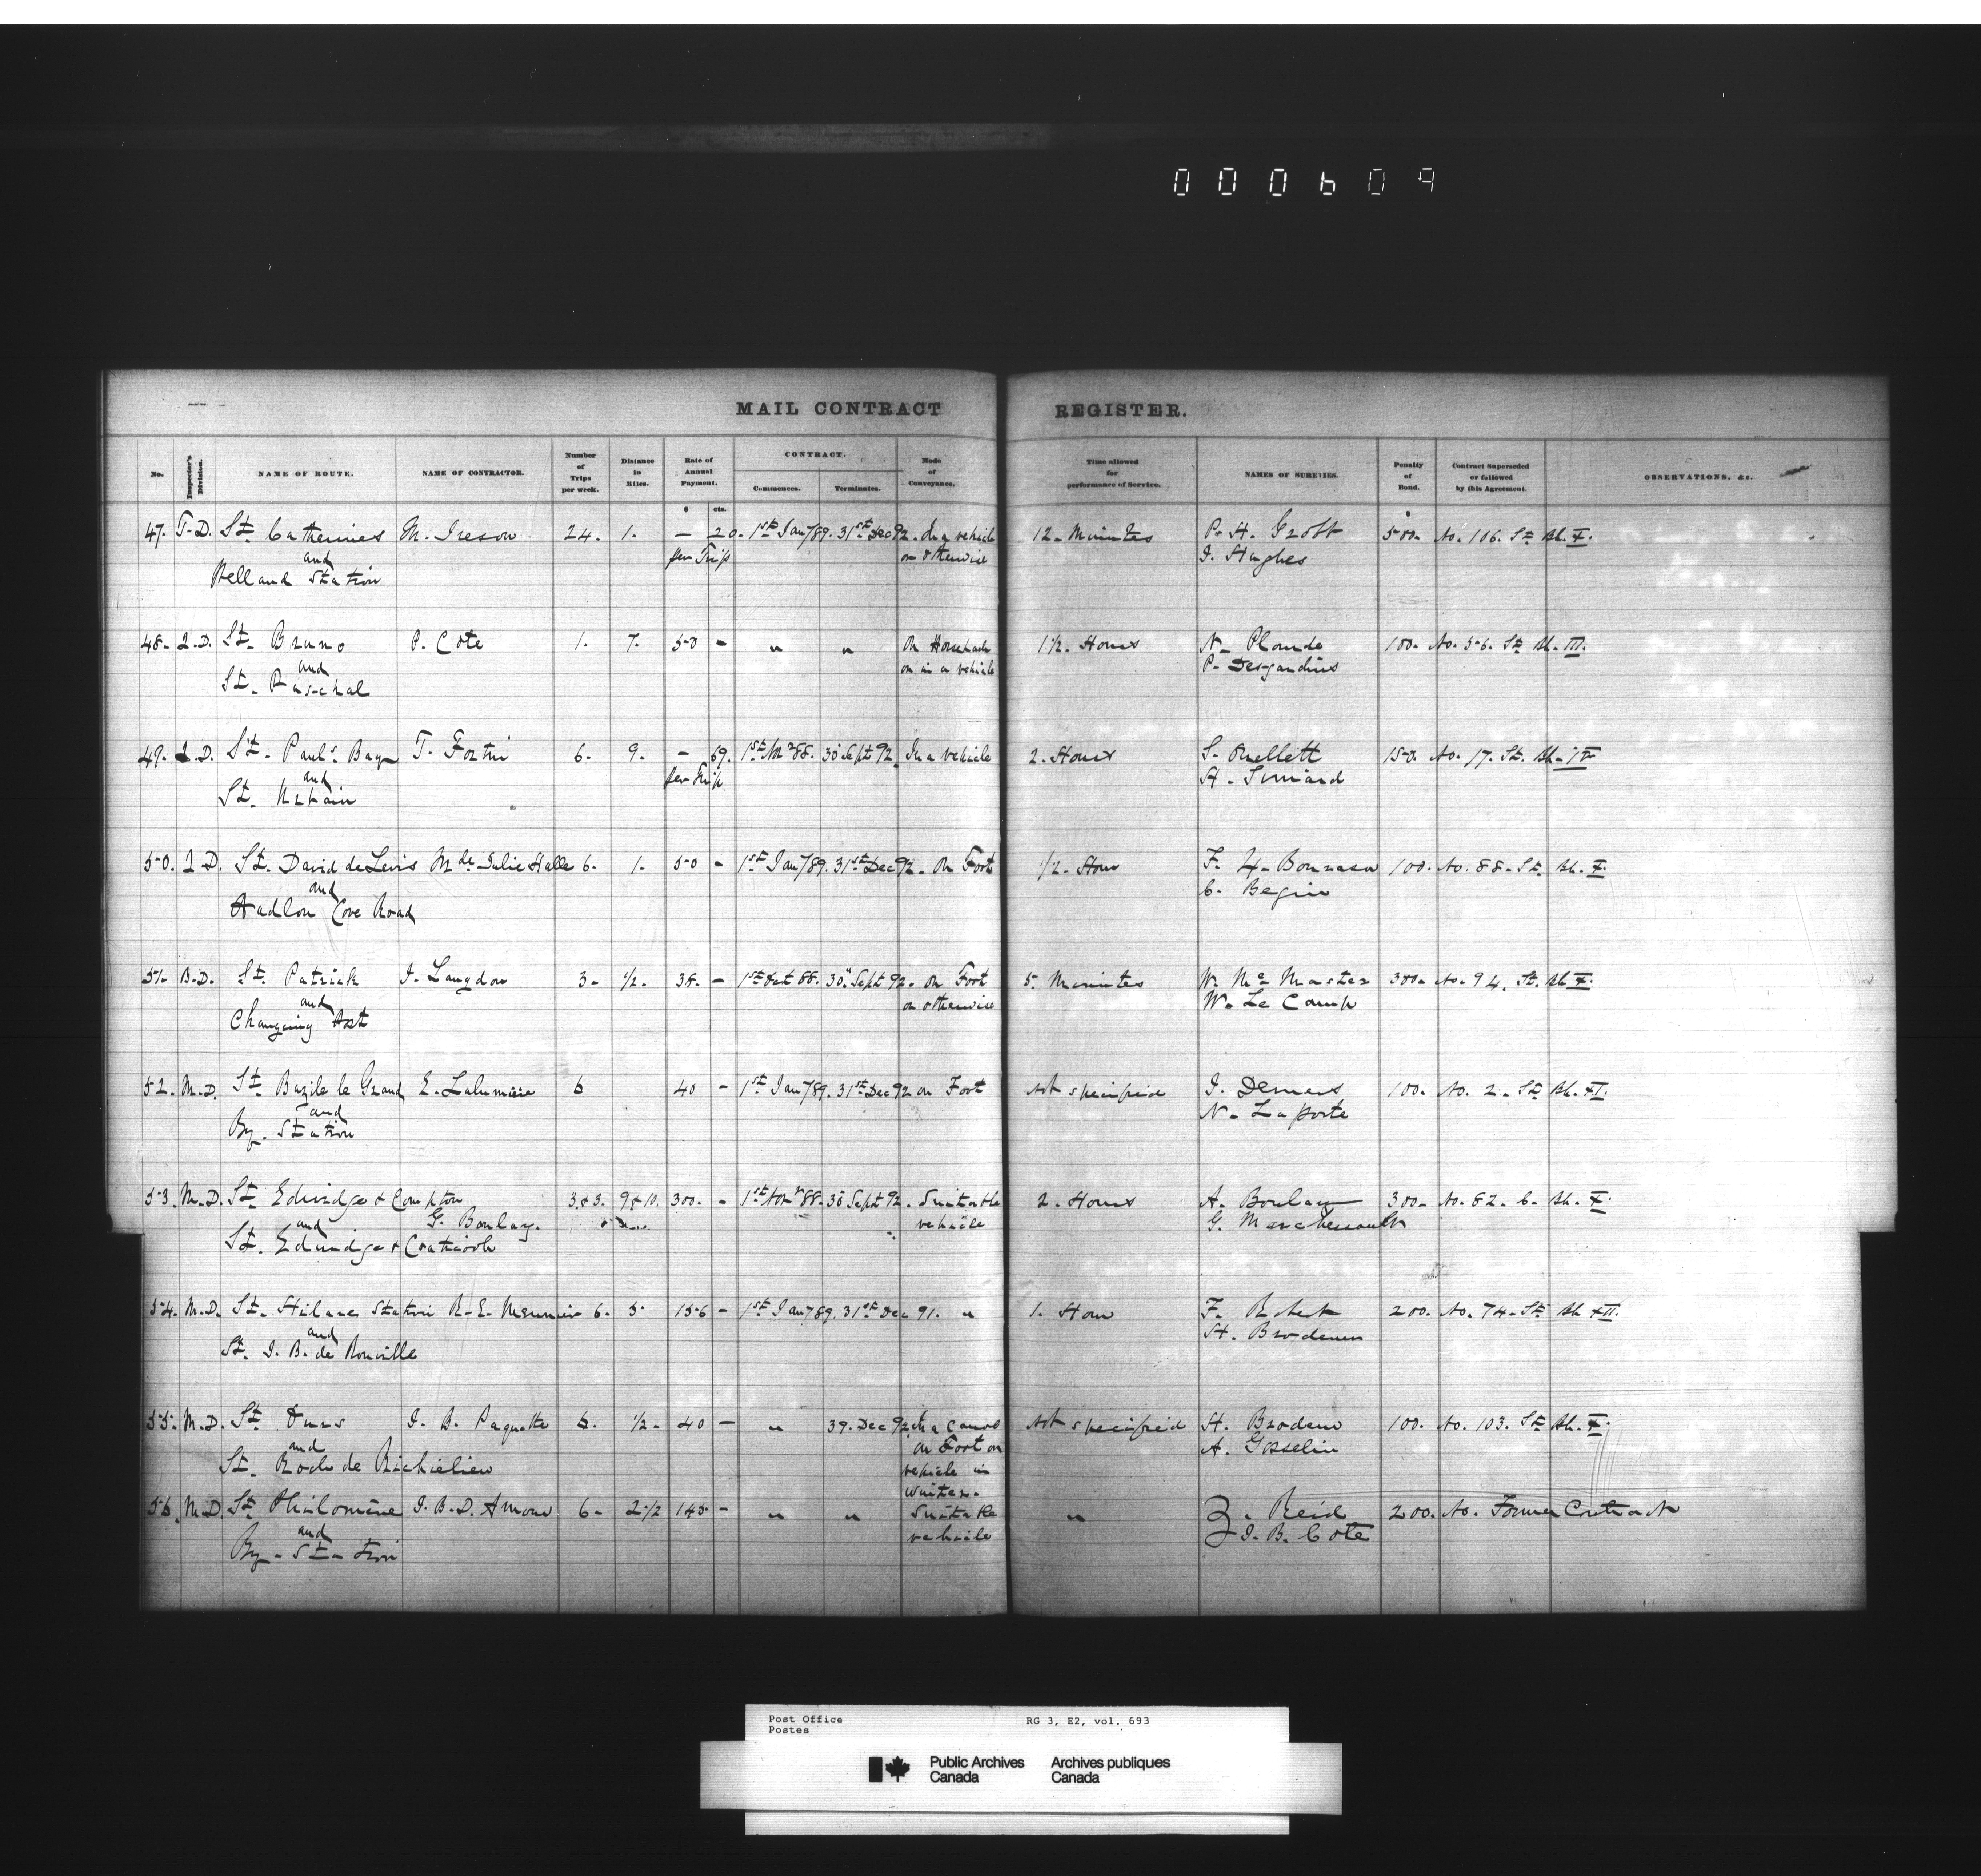 000609
MAIL CONTRACT REGISTER.
No. Inspector's Division. NAME OF ROUTE. NAME OF CONTRACTOR. Number of Trips per week. Distance in Miles. Rate of Annual Payment. CONTRACT. Commences. Terminates. Mode of Conveyance. Time allowed for performance of Service. NAMES OF SURETIES. Penalty of Bond. Contract Superseded or followed by this Agreement. OBSERVATIONS, &c.
$ cts.
47. T.D. St. Catherines M. Ireson 24. 1. — 20. 1st Jan 89. 31st Dec 92. In a vehicle 12. Minutes P. H. Grobb 500. No. 106. St. Bk. X.
and per Trip or otherwise J. Hughes
Welland Station
48. Q.D. St. Bruno P. Cote 1. 7. 50 - " " On Horseback 1 1/2. Hours N. Plourde 100. No. 56. St. Bk. III.
and or in a vehicle P. Desjardins
St. Paschal
49. Q.D. St. Pauls Bay T. Fortin 6. 9. — 69. 1st Nov 88. 30 Sept 92. In a vehicle 2. Hours S. Ouellett 150. No. 17. St. Bk.
and per Trip H. Simard
St. Urbain
50. Q.D. St. David de Levis Mde Julie Halle 6. 1. 50 - 1st Jan 89. 31st Dec 92. On Foot 1/2. Hour F. 100. No. 88. St. Bk. X.
and C. Begin
Hadlow Cove Road
51. B.D. St. Patrick J. Langdon 3. 1/2. 38. - 1st Oct 88. 30 Sept 92. On Foot 5. Minutes W. McMaster 300. No. 94. St. Bk X.
and or otherwise W. Le Camp
Changuing
52. M.D. St. Bazile le Grand E. Lalumiere 6 40 - 1st Jan 89. 31st Dec 92 on Foot Not specified J. Demers 100. No. 2. St. Bk. XI.
and N. Laporte
Ry. Station
53. M.D. St. Edwidge & Compton 3 & 3. 9 & 10. 300. - 1st Nov 88. 30 Sept 92. Suitable 2. Hours A. Boulay 300. No. 82. C. Bk. X.
and G. Boulay. vehicle G. Marchessault
St. Edwidge & Coaticook
54. M.D. St. Hilaire Station R. E. Meunier 6. 5. 156 - 1st Jan 89. 31st Dec 91. " 1. Hour F. Robert 200. No. 74. St. Bk XII.
and H. Brodeur
St. J. B. de Rouville
55. M.D. St. Ours J. B. Paquette 6. 1/2. 40 — " 39. Dec 92. In a Canoe Not specified H. Brodeur 100. No. 103. St. Bk. X.
and on Foot or A. Gosselin
St. Roch de Richelieu vehicle in
winter.
56. M.D. St. Philomène J. B. D. Amour 6. 2 1/2 145 - " " Suitable " Z. Reid 200. No. Former Contract
and vehicle J. B. Cote
Ry. Station
Post Office RG 3, E2, vol. 693
Postes
Public Archives Archives publiques
Canada Canada